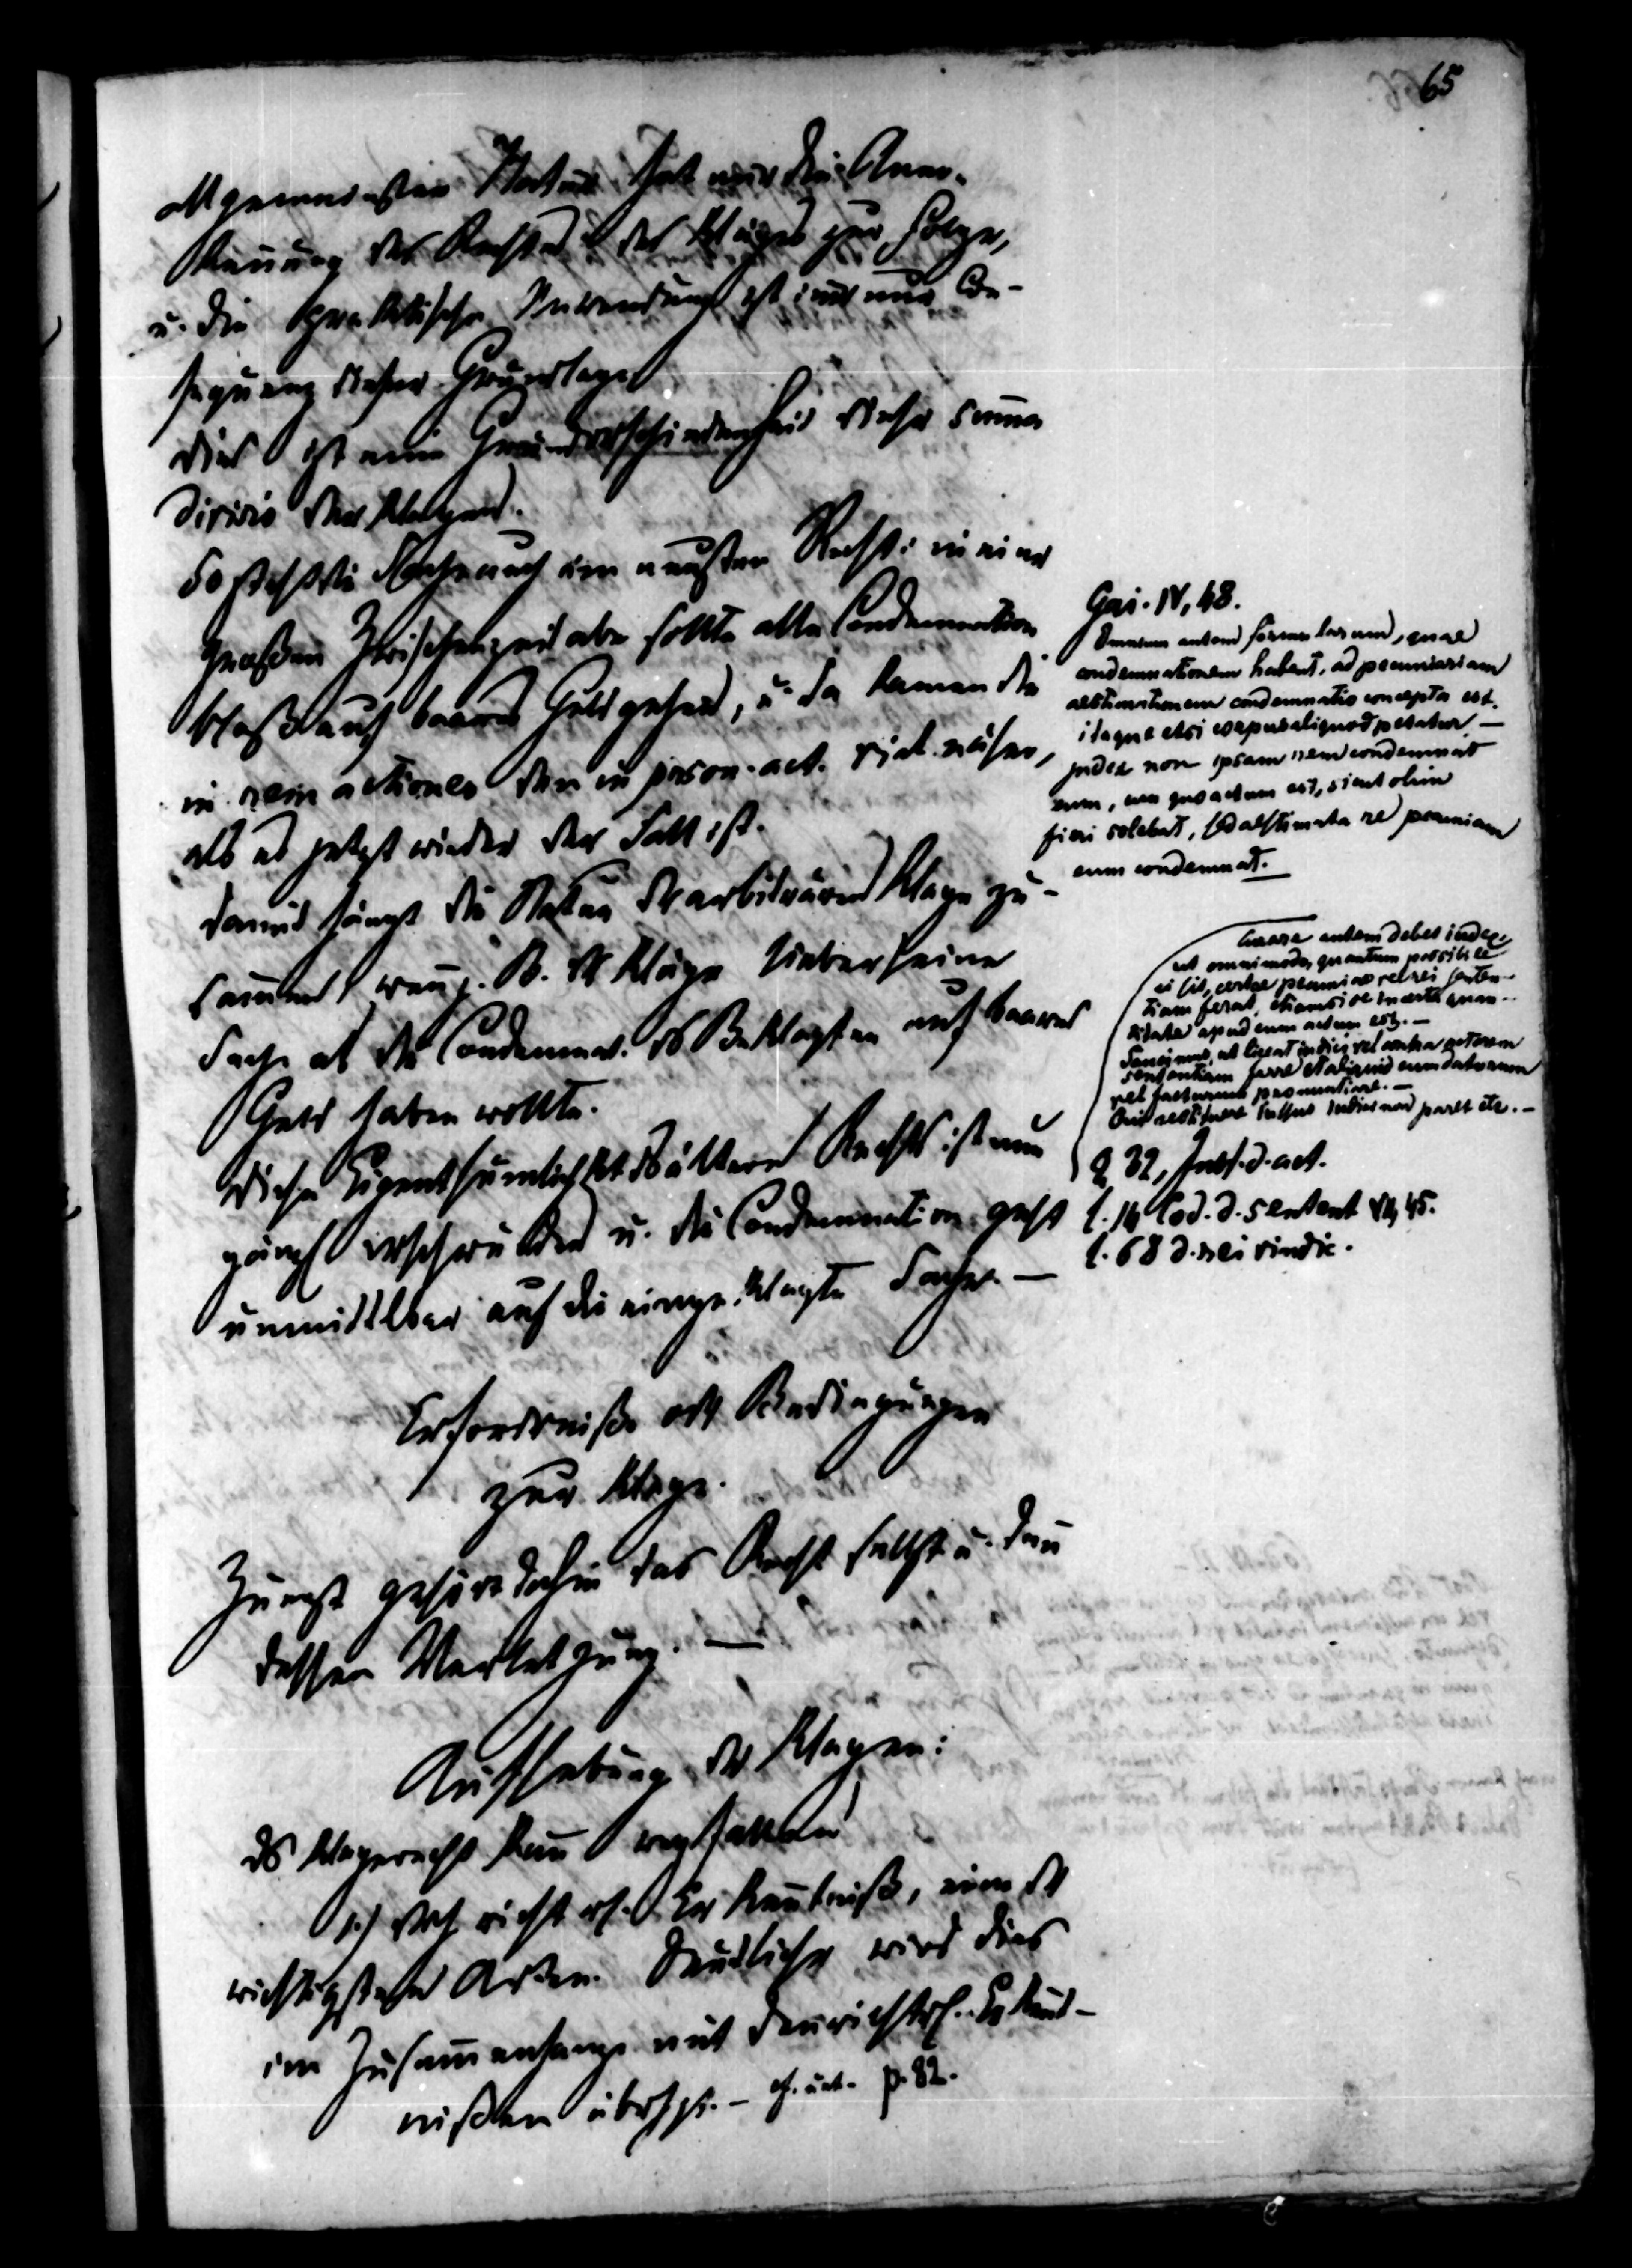 65
allgemeinsten Natur hat nur die Aner-
kennung des Rechtes des Klägers zur Folge,
u. die praktische Anwendung ist nur Con-
sequenz dieser Grundlage
dies ist eine Grundverschiedenheit dieser summa
divisio der Klagen.
So steht die Sache nach dem neusten Recht: in einer
großen Zwischenzeit aber sollte alle Condemnation
bloß auf baares Geld gehen, u. da kamen die
in rem actiones den in person. act. viel näher,
als es jetzt wieder der Fall ist.
damit hängt die Natur der arbiträren Klage zu-
sammen, wenn z. B. der Kläger lieber seine
Sache als die Condemnat. des Beklagten auf baares
Geld haben wollte.
diese Eigenthümlichkt des ältern Rechts ist nun
gänzl verschwunden u. die Condemnation geht
unmittelbar auf die eingeklagte Sache. —
Erforderniße od. Bedingungen
zur Klage.
Zuerst gehört dahin das Recht selbst u. dann
dessen Verletzung. —
Aufhebung der Klagen:
das Klagerecht kann wegfallen
1.) durch richterl. Erkenntniß, eine der
wichtigsten Arten. Deutlicher wird dies
im Zusammenhange mit den richterl. Erkennt-
nißen übhpt. — cf. unt. p. 82.
Gai. IV, 48.
Omnium autem formularum, quae
condemnationem habent, ad pecuniariam
aestimationem condemnatio concepta est.
itaque etsi corpus aliquod petatur —
judex non ipsam rem condemnat
eum, cum quo actum est, sicut olim
fieri solebat, sed aestimata re pecuniam
eum condemnat.
Curare autem debet index,
ut omnimodo, quantum possibile
ei sit, certae pecuniae vel rei senten-
tiam ferat, etiamsi de incerta quan-
titate apud eum actum est. —
Sancimus, ut liceat indici vel contra actorem
sententiam ferre et aliquid eum daturum
vel facturum pronuntiare. —
Qui restituere iussus iudici non paret etc. —
§ 32, Inst. d. act.
l. 14 Cod. d. sentent VII, 45.
l. 68 d. rei vindic.